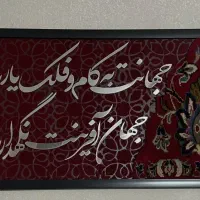 جهانت به کام و فلک یار
جهان آفرینت نگهدار